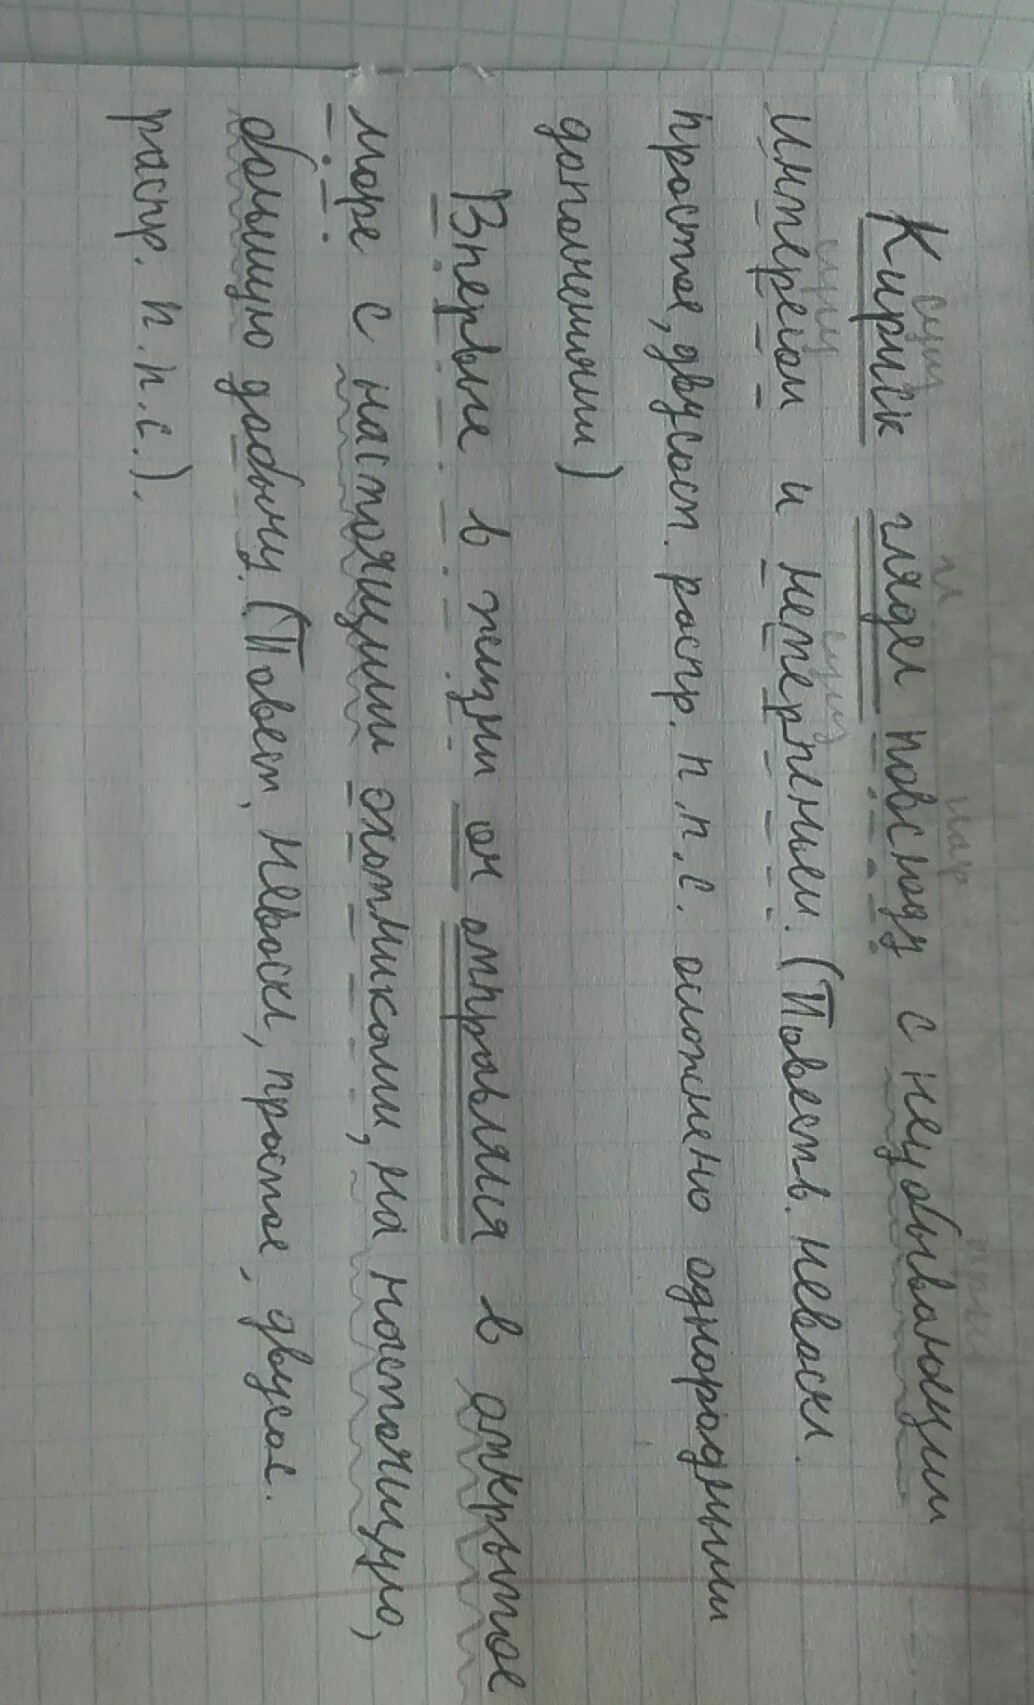 сущ гл нар прил
Кириск глядел повсюду с неубывающим
сущ сущ
интересом и нетерпеньем. (Повеств. невоскл.
простое, двусост. распр. п.п.с. ослож­нено однородными
дополнениями)
Впервые в жизни он отправлялся в открытое
море с настоящими охотниками, на настоящую,
большую добычу. (Повест, невоскл, простое, двусос.
распр. п.п.с.).